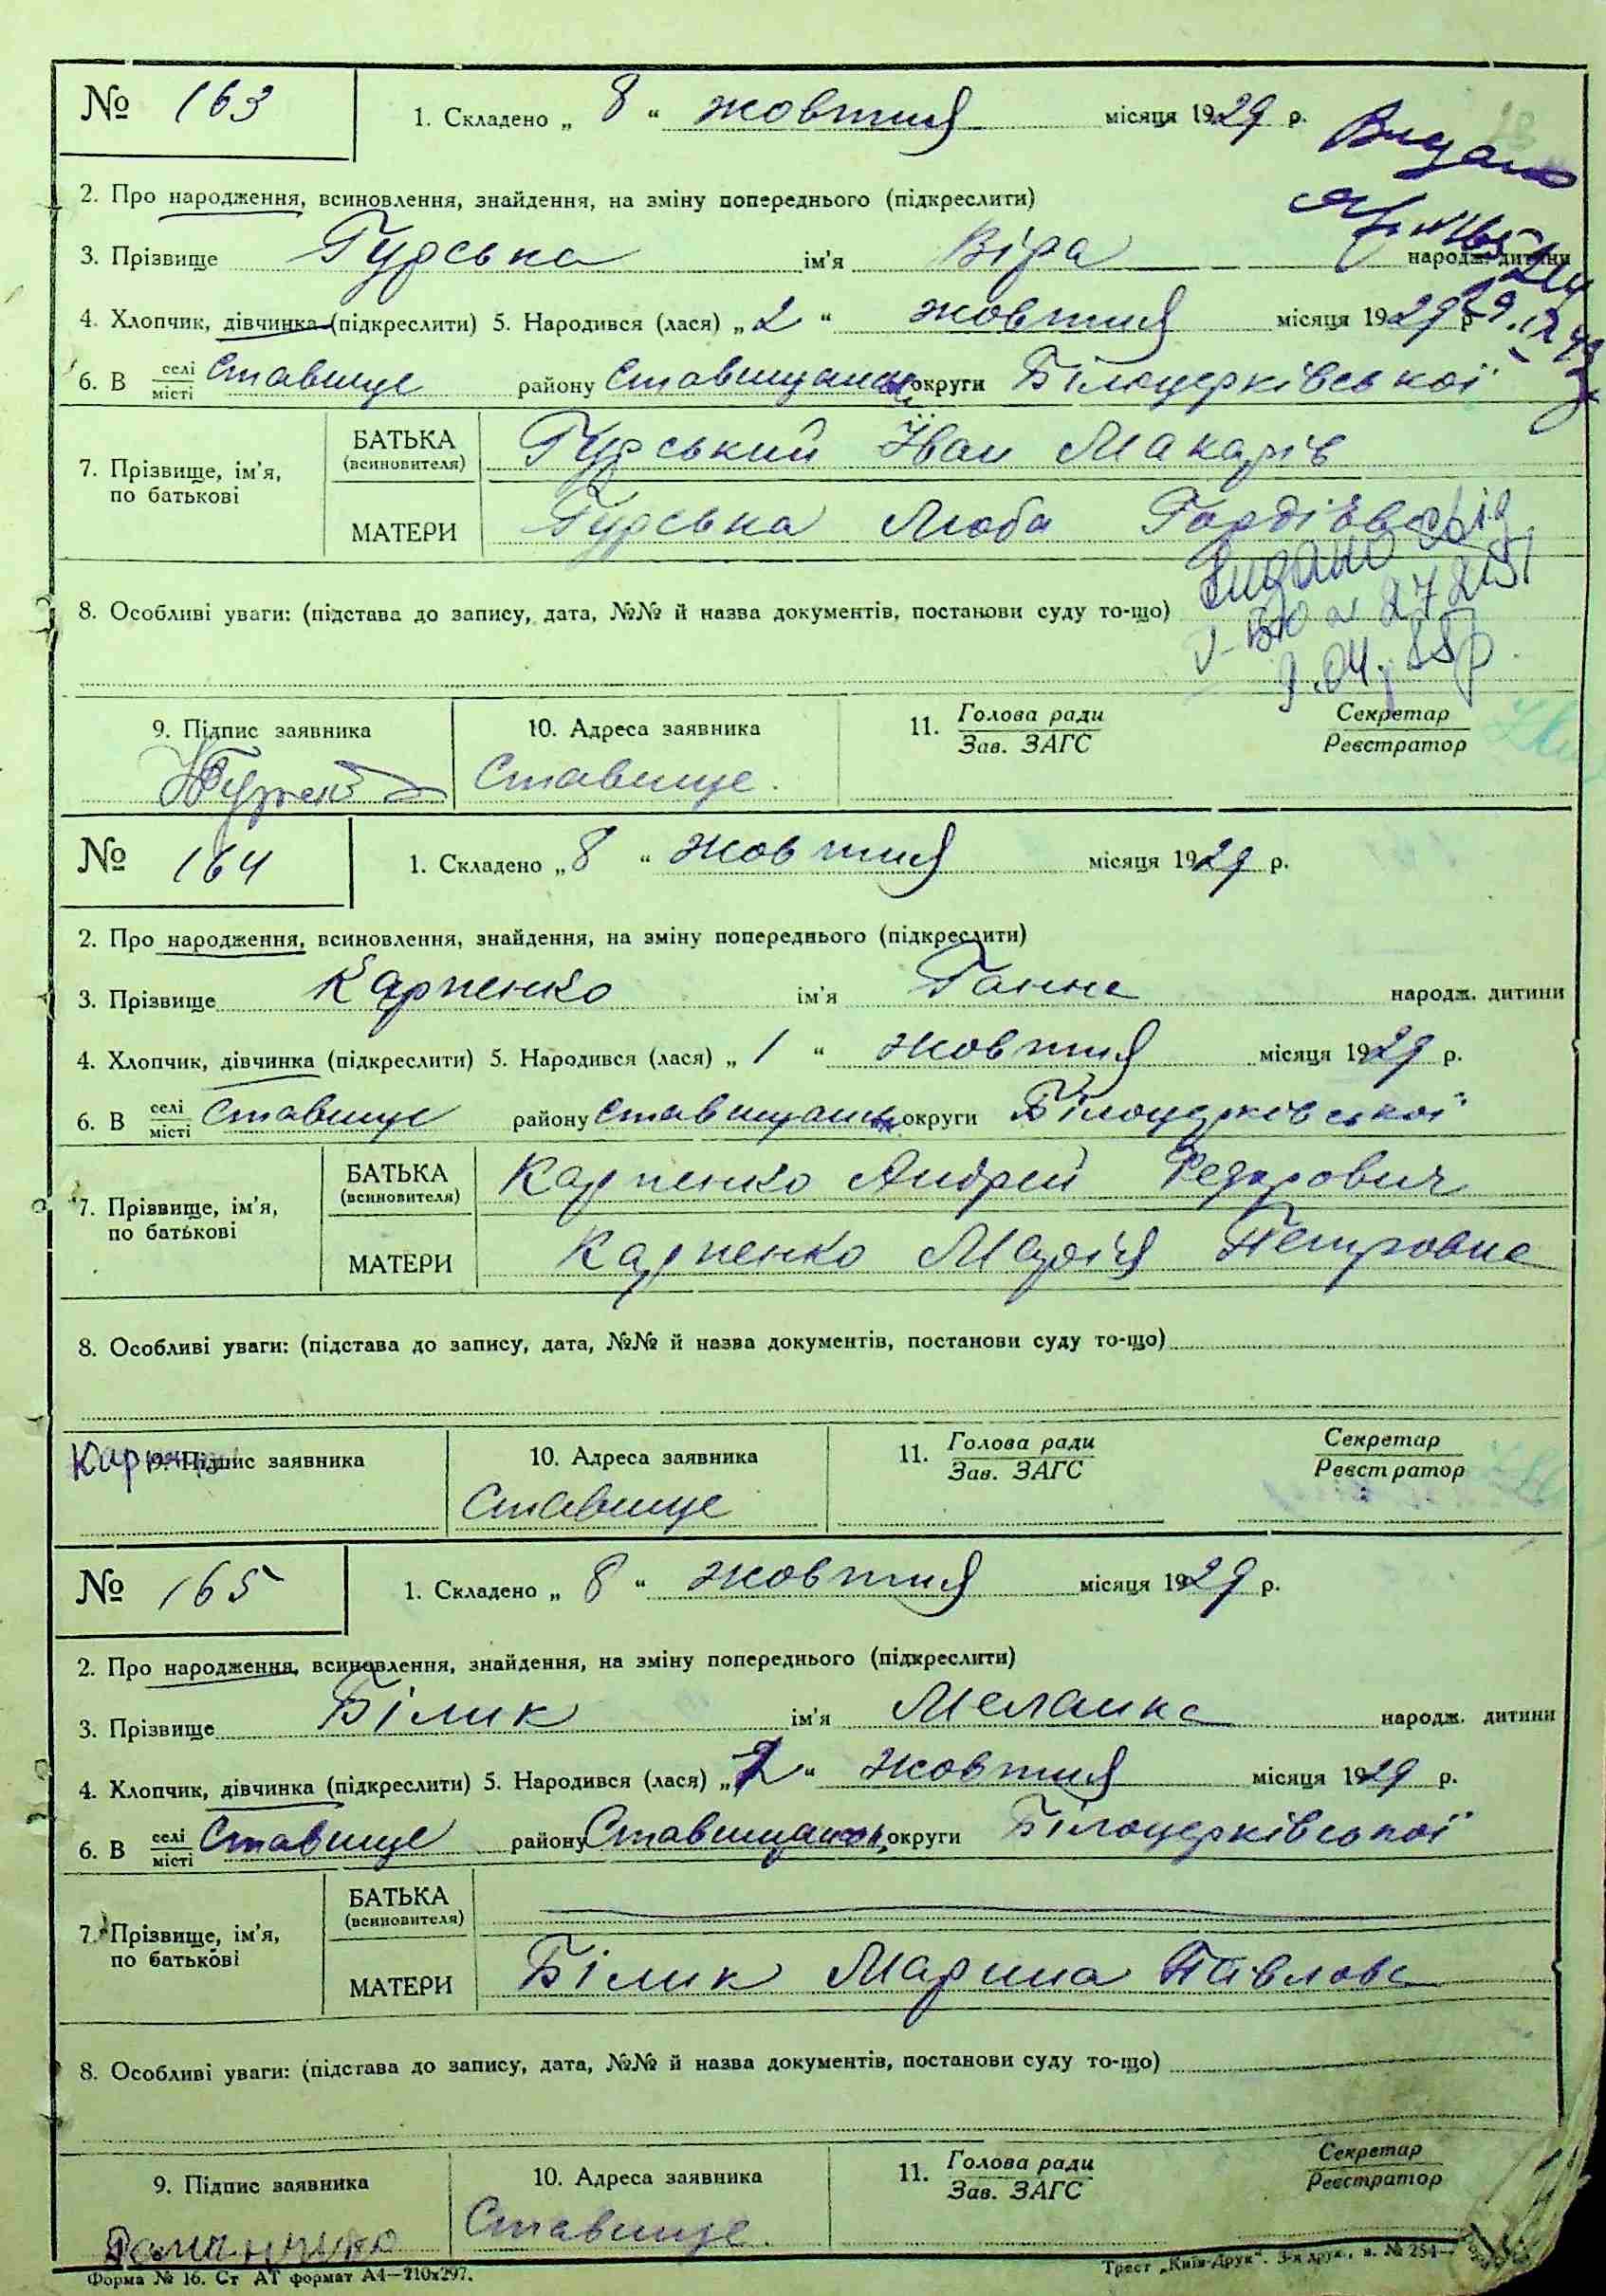 № 163
1. Складено „ 8 “ жовтня місяця 1929 р.
Видано
2. Про народження, всиновлення, знайдення, на зміну попереднього (підкреслити)
3. Прізвище Гурська ім'я Віра народж. дитини
4. Хлопчик, дівчинка (підкреслити) 5. Народився (лася) „ 2 “ жовтня місяця 1929 р
6. В селі/місті Ставище району Ставищанськ округи Білоцерківської
7. Прізвище, ім'я, по батькові
БАТЬКА (всиновителя) Гурський Іван Макарів
МАТЕРИ Гурська Люба Гордіївна
8. Особливі уваги: (підстава до запису, дата, №№ й назва документів, постанови суду то-що)
Видано
9. Підпис заявника
10. Адреса заявника
11. Голова ради / Зав. ЗАГС
Секретар / Реєстратор
Ставище.
№ 164
1. Складено „ 8 “ жовтня місяця 1929 р.
2. Про народження, всиновлення, знайдення, на зміну попереднього (підкреслити)
3. Прізвище Карпенко ім'я Ганна народж. дитини
4. Хлопчик, дівчинка (підкреслити) 5. Народився (лася) „ 1 “ жовтня місяця 1929 р.
6. В селі/місті Ставище району Ставищанськ округи Білоцерківської
7. Прізвище, ім'я, по батькові
БАТЬКА (всиновителя) Карпенко Андрей Федорович
МАТЕРИ Карпенко Марія Петровна
8. Особливі уваги: (підстава до запису, дата, №№ й назва документів, постанови суду то-що)
9. Підпис заявника
10. Адреса заявника
11. Голова ради / Зав. ЗАГС
Секретар / Реєстратор
Ставище
№ 165
1. Складено „ 8 “ жовтня місяця 1929 р.
2. Про народження, всиновлення, знайдення, на зміну попереднього (підкреслити)
3. Прізвище Білик ім'я Меланка народж. дитини
4. Хлопчик, дівчинка (підкреслити) 5. Народився (лася) „ 2 “ жовтня місяця 1929 р.
6. В селі/місті Ставище району Ставищанськ округи Білоцерківської
7. Прізвище, ім'я, по батькові
БАТЬКА (всиновителя)
МАТЕРИ Білик Марина Павлова
8. Особливі уваги: (підстава до запису, дата, №№ й назва документів, постанови суду то-що)
9. Підпис заявника
10. Адреса заявника
11. Голова ради / Зав. ЗАГС
Секретар / Реєстратор
Ставище.
Форма № 16. Ст АТ формат А4—210х297.
Трест „Київ-Друк“. 3-я друк., з. № 254—